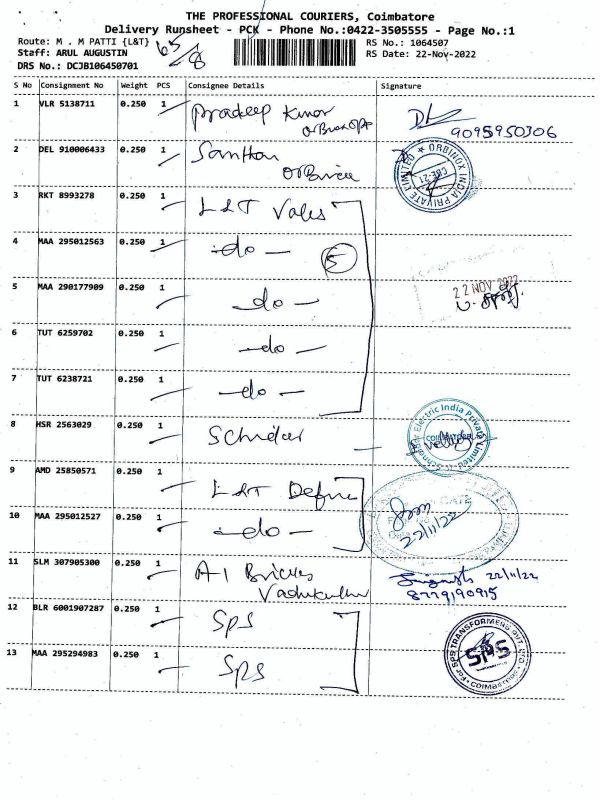 THE PROFESSIONAL COURIERS, Coimbatore
Delivery Runsheet - PCK - Phone No.:0422-3505555 - Page No.:1
Route: M . M PATTI {L&T} 65/8 RS No.: 1064507
Staff: ARUL AUGUSTIN RS Date: 22-Nov-2022
DRS No.: DCJB106450701
S No Consignment No Weight PCS Consignee Details Signature
1 VLR 5138711 0.250 1 Pradeep Kumar
9095950306
2 DEL 910006433 0.250 1 Santhan
ORBINOX INDIA PRIVATE LIMITED ★ CBE-21
3 RKT 8993278 0.250 1 L&T Valves
4 MAA 295012563 0.250 1 -do- 5
5 MAA 290177909 0.250 1 -do- 22 NOV 2022
6 TUT 6259702 0.250 1 -do-
7 TUT 6238721 0.250 1 -do-
8 HSR 2563029 0.250 1
Schneider Electric India Private Limited COIMBATORE
9 AMD 25850571 0.250 1 L&T Defence
10 MAA 295012527 0.250 1 -do- 22/11/22
11 SLM 307905300 0.250 1 A1 Bricks 22/11/22
8779190915
12 BLR 6001907287 0.250 1 SPS
For SPS TRANSFORMERS PVT. LTD. SPS COIMBATORE
13 MAA 295294983 0.250 1 SPS